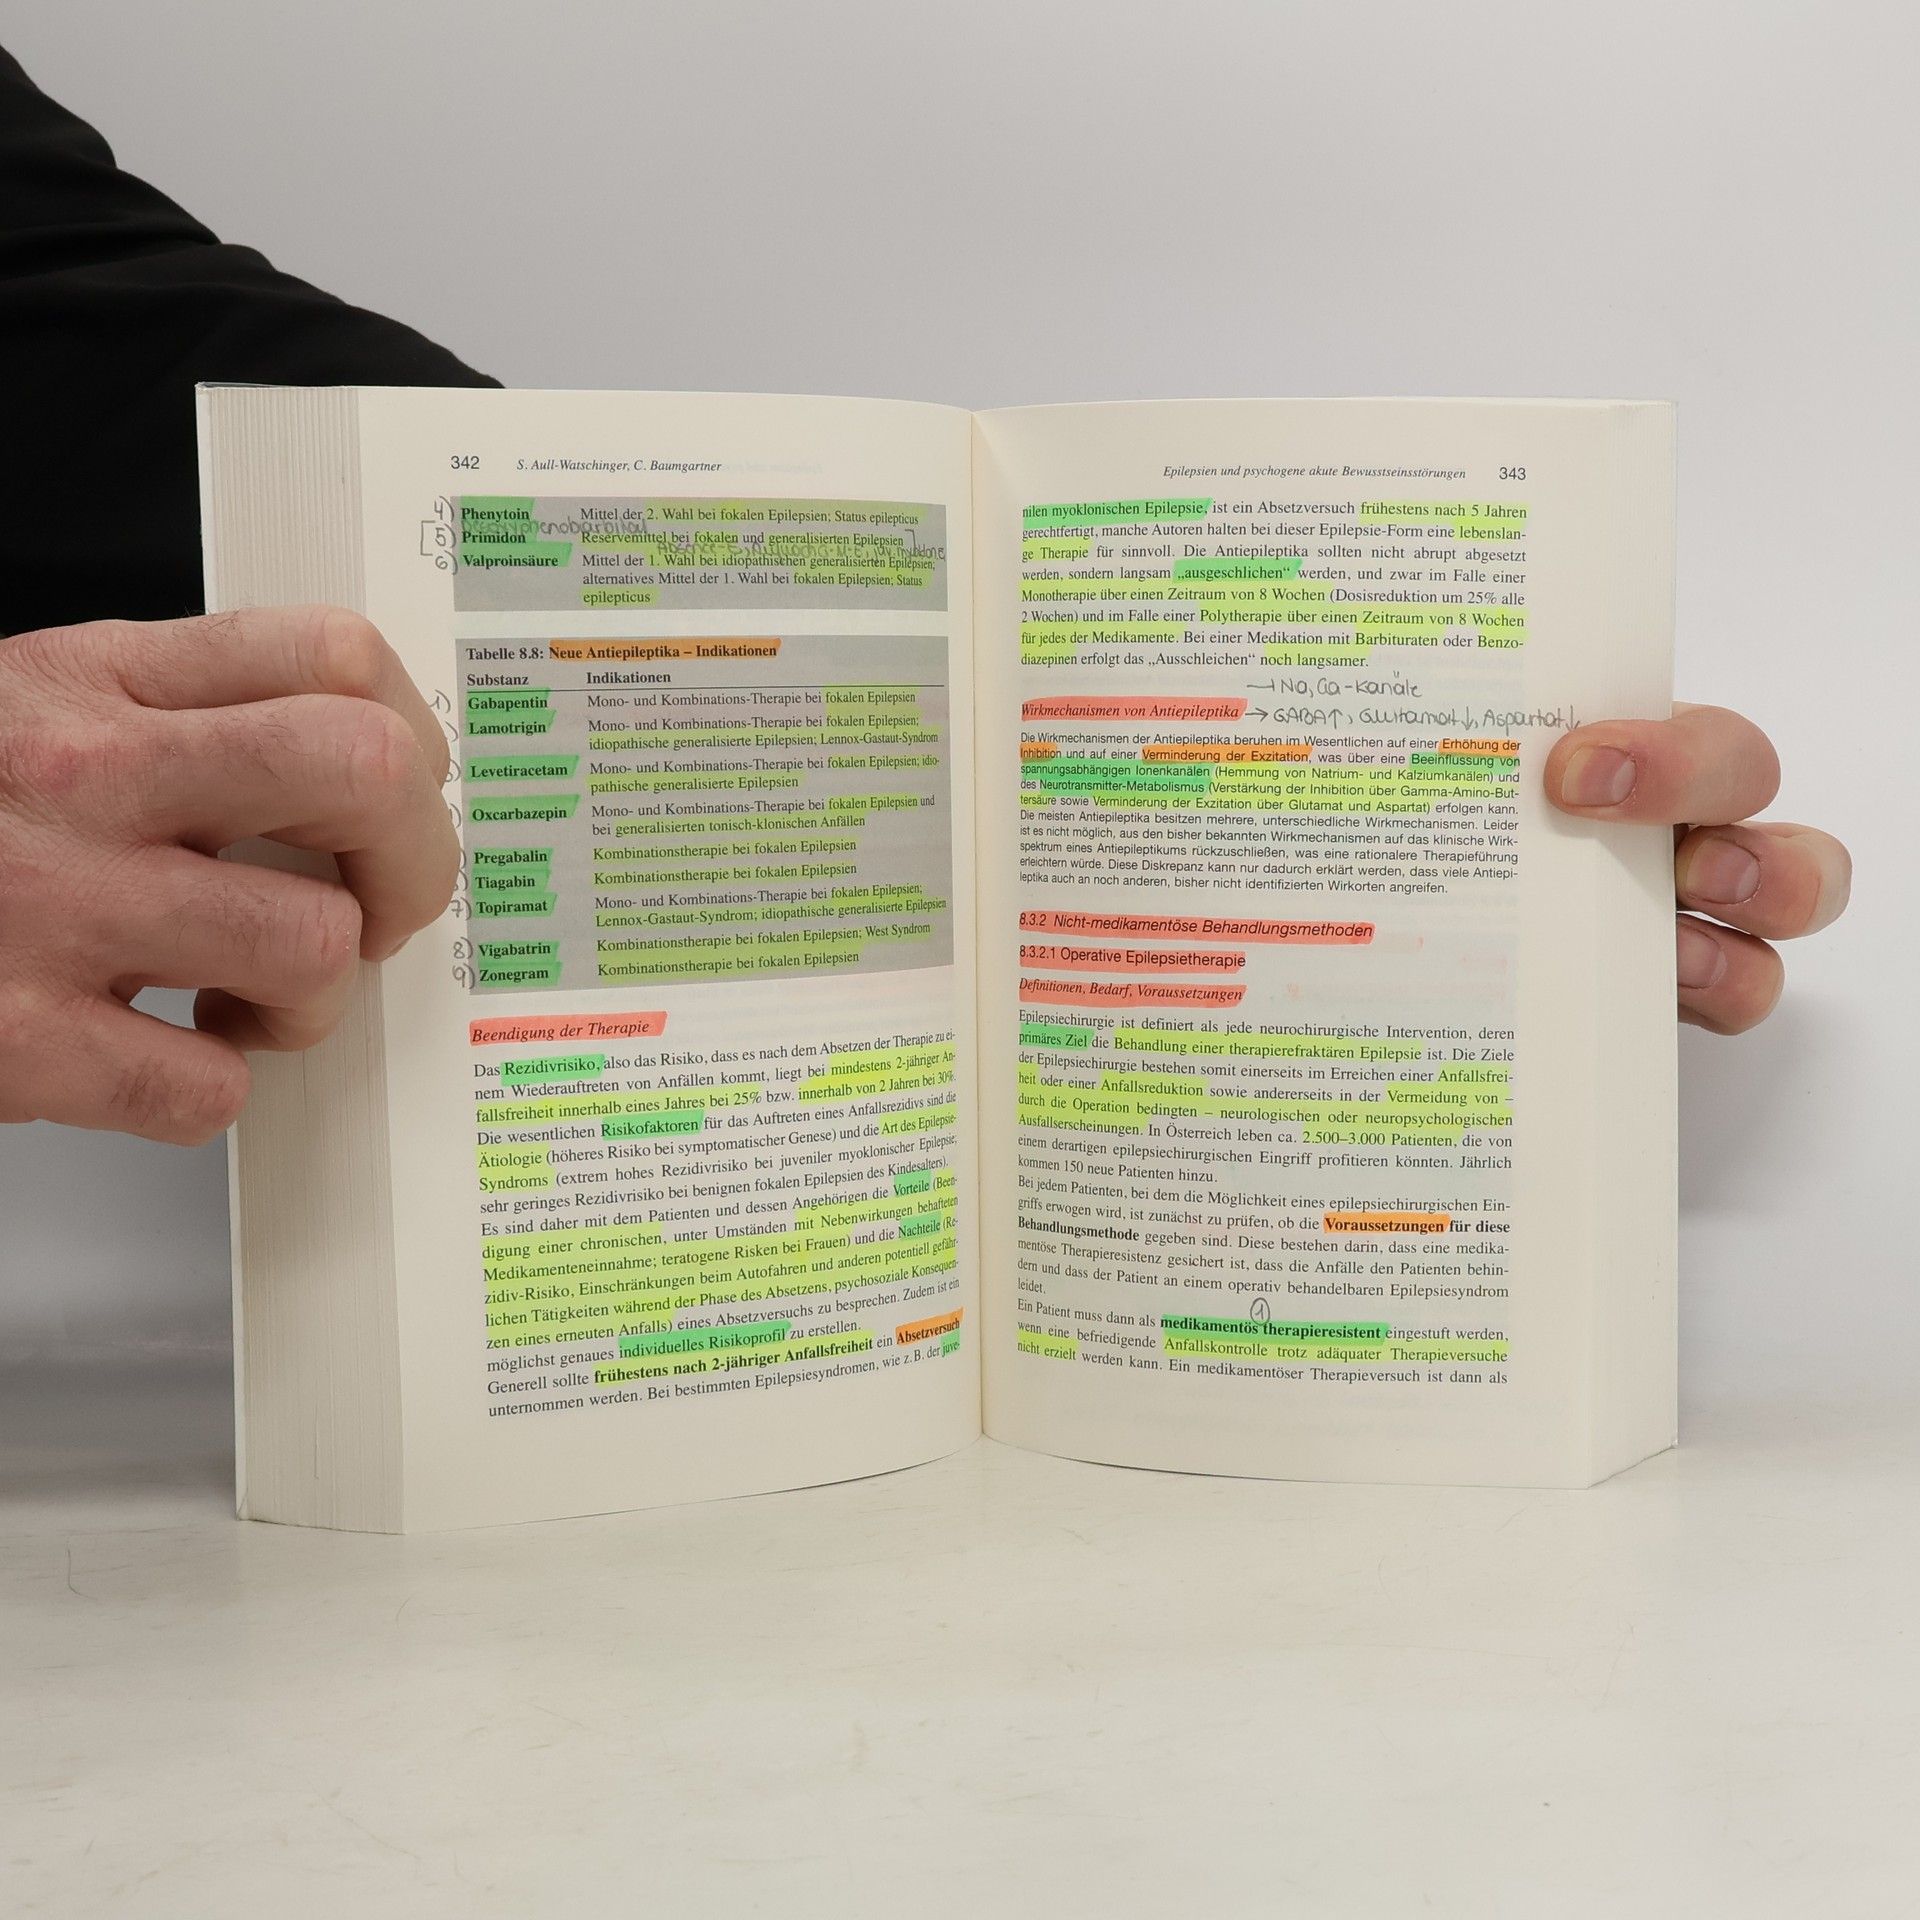 342 S. Aull-Watschinger, C. Baumgartner
4) Phenytoin Mittel der 2. Wahl bei fokalen Epilepsien; Status epilepticus
5) Primidon Reservemittel bei fokalen und generalisierten Epilepsien
6) Valproinsäure Mittel der 1. Wahl bei idiopathischen generalisierten Epilepsien;
alternatives Mittel der 1. Wahl bei fokalen Epilepsien; Status
epilepticus
Tabelle 8.8: Neue Antiepileptika – Indikationen
Substanz Indikationen
1) Gabapentin Mono- und Kombinations-Therapie bei fokalen Epilepsien
Lamotrigin Mono- und Kombinations-Therapie bei fokalen Epilepsien;
idiopathische generalisierte Epilepsien; Lennox-Gastaut-Syndrom
Levetiracetam Mono- und Kombinations-Therapie bei fokalen Epilepsien; idio-
pathische generalisierte Epilepsien
Oxcarbazepin Mono- und Kombinations-Therapie bei fokalen Epilepsien und
bei generalisierten tonisch-klonischen Anfällen
Pregabalin Kombinationstherapie bei fokalen Epilepsien
Tiagabin Kombinationstherapie bei fokalen Epilepsien
7) Topiramat Mono- und Kombinations-Therapie bei fokalen Epilepsien;
Lennox-Gastaut-Syndrom; idiopathische generalisierte Epilepsien
8) Vigabatrin Kombinationstherapie bei fokalen Epilepsien; West Syndrom
9) Zonegram Kombinationstherapie bei fokalen Epilepsien
Beendigung der Therapie
Das Rezidivrisiko, also das Risiko, dass es nach dem Absetzen der Therapie zu ei-
nem Wiederauftreten von Anfällen kommt, liegt bei mindestens 2-jähriger An-
fallsfreiheit innerhalb eines Jahres bei 25% bzw. innerhalb von 2 Jahren bei 30%.
Die wesentlichen Risikofaktoren für das Auftreten eines Anfallsrezidivs sind die
Ätiologie (höheres Risiko bei symptomatischer Genese) und die Art des Epilepsie-
Syndroms (extrem hohes Rezidivrisiko bei juveniler myoklonischer Epilepsie;
sehr geringes Rezidivrisiko bei benignen fokalen Epilepsien des Kindesalters).
Es sind daher mit dem Patienten und dessen Angehörigen die Vorteile (Been-
digung einer chronischen, unter Umständen mit Nebenwirkungen behafteten
Medikamenteneinnahme; teratogene Risken bei Frauen) und die Nachteile (Re-
zidiv-Risiko, Einschränkungen beim Autofahren und anderen potentiell gefähr-
lichen Tätigkeiten während der Phase des Absetzens, psychosoziale Konsequen-
zen eines erneuten Anfalls) eines Absetzversuchs zu besprechen. Zudem ist ein
möglichst genaues individuelles Risikoprofil zu erstellen.
Generell sollte frühestens nach 2-jähriger Anfallsfreiheit ein Absetzversuch
unternommen werden. Bei bestimmten Epilepsiesyndromen, wie z. B. der juve-
Epilepsien und psychogene akute Bewusstseinsstörungen 343
nilen myoklonischen Epilepsie, ist ein Absetzversuch frühestens nach 5 Jahren
gerechtfertigt, manche Autoren halten bei dieser Epilepsie-Form eine lebenslan-
ge Therapie für sinnvoll. Die Antiepileptika sollten nicht abrupt abgesetzt
werden, sondern langsam „ausgeschlichen“ werden, und zwar im Falle einer
Monotherapie über einen Zeitraum von 8 Wochen (Dosisreduktion um 25% alle
2 Wochen) und im Falle einer Polytherapie über einen Zeitraum von 8 Wochen
für jedes der Medikamente. Bei einer Medikation mit Barbituraten oder Benzo-
diazepinen erfolgt das „Ausschleichen“ noch langsamer.
→ Na, Ca-Kanäle
Wirkmechanismen von Antiepileptika → GABA↑, Glutamat↓, Aspartat↓
Die Wirkmechanismen der Antiepileptika beruhen im Wesentlichen auf einer Erhöhung der
Inhibition und auf einer Verminderung der Exzitation, was über eine Beeinflussung von
spannungsabhängigen Ionenkanälen (Hemmung von Natrium- und Kalziumkanälen) und
des Neurotransmitter-Metabolismus (Verstärkung der Inhibition über Gamma-Amino-But-
tersäure sowie Verminderung der Exzitation über Glutamat und Aspartat) erfolgen kann.
Die meisten Antiepileptika besitzen mehrere, unterschiedliche Wirkmechanismen. Leider
ist es nicht möglich, aus den bisher bekannten Wirkmechanismen auf das klinische Wirk-
spektrum eines Antiepileptikums rückzuschließen, was eine rationalere Therapieführung
erleichtern würde. Diese Diskrepanz kann nur dadurch erklärt werden, dass viele Antiepi-
leptika auch an noch anderen, bisher nicht identifizierten Wirkorten angreifen.
8.3.2 Nicht-medikamentöse Behandlungsmethoden
8.3.2.1 Operative Epilepsietherapie
Definitionen, Bedarf, Voraussetzungen
Epilepsiechirurgie ist definiert als jede neurochirurgische Intervention, deren
primäres Ziel die Behandlung einer therapierefraktären Epilepsie ist. Die Ziele
der Epilepsiechirurgie bestehen somit einerseits im Erreichen einer Anfallsfrei-
heit oder einer Anfallsreduktion sowie andererseits in der Vermeidung von –
durch die Operation bedingten – neurologischen oder neuropsychologischen
Ausfallserscheinungen. In Österreich leben ca. 2.500–3.000 Patienten, die von
einem derartigen epilepsiechirurgischen Eingriff profitieren könnten. Jährlich
kommen 150 neue Patienten hinzu.
Bei jedem Patienten, bei dem die Möglichkeit eines epilepsiechirurgischen Ein-
griffs erwogen wird, ist zunächst zu prüfen, ob die Voraussetzungen für diese
Behandlungsmethode gegeben sind. Diese bestehen darin, dass eine medika-
mentöse Therapieresistenz gesichert ist, dass die Anfälle den Patienten behin-
dern und dass der Patient an einem operativ behandelbaren Epilepsiesyndrom
leidet.
1
Ein Patient muss dann als medikamentös therapieresistent eingestuft werden,
wenn eine befriedigende Anfallskontrolle trotz adäquater Therapieversuche
nicht erzielt werden kann. Ein medikamentöser Therapieversuch ist dann als